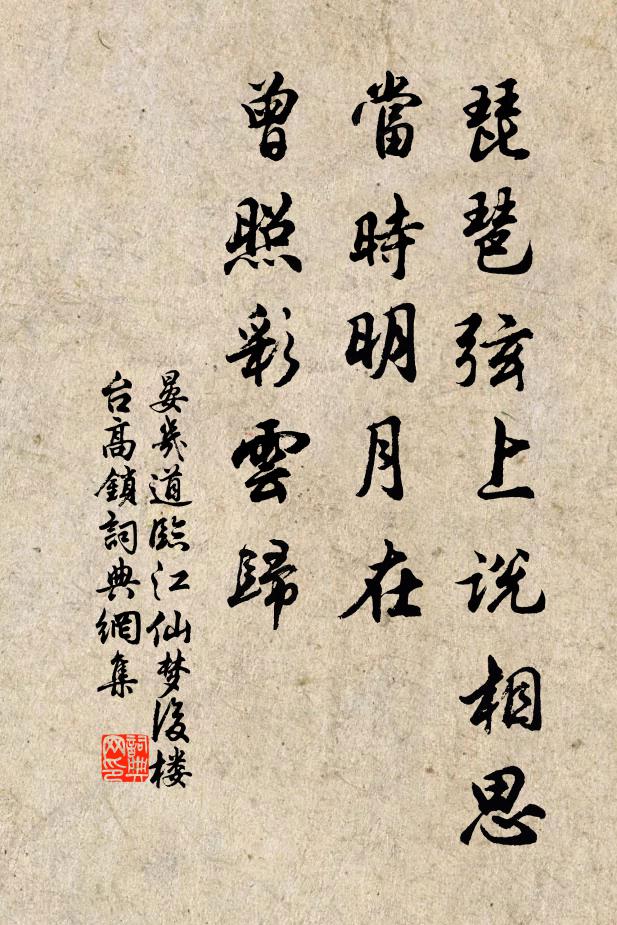 琵琶弦上说相思
當時明月在
曾照彩雲歸
晏幾道臨江仙梦後楼
台高鎖詞典網集
詞典
网印